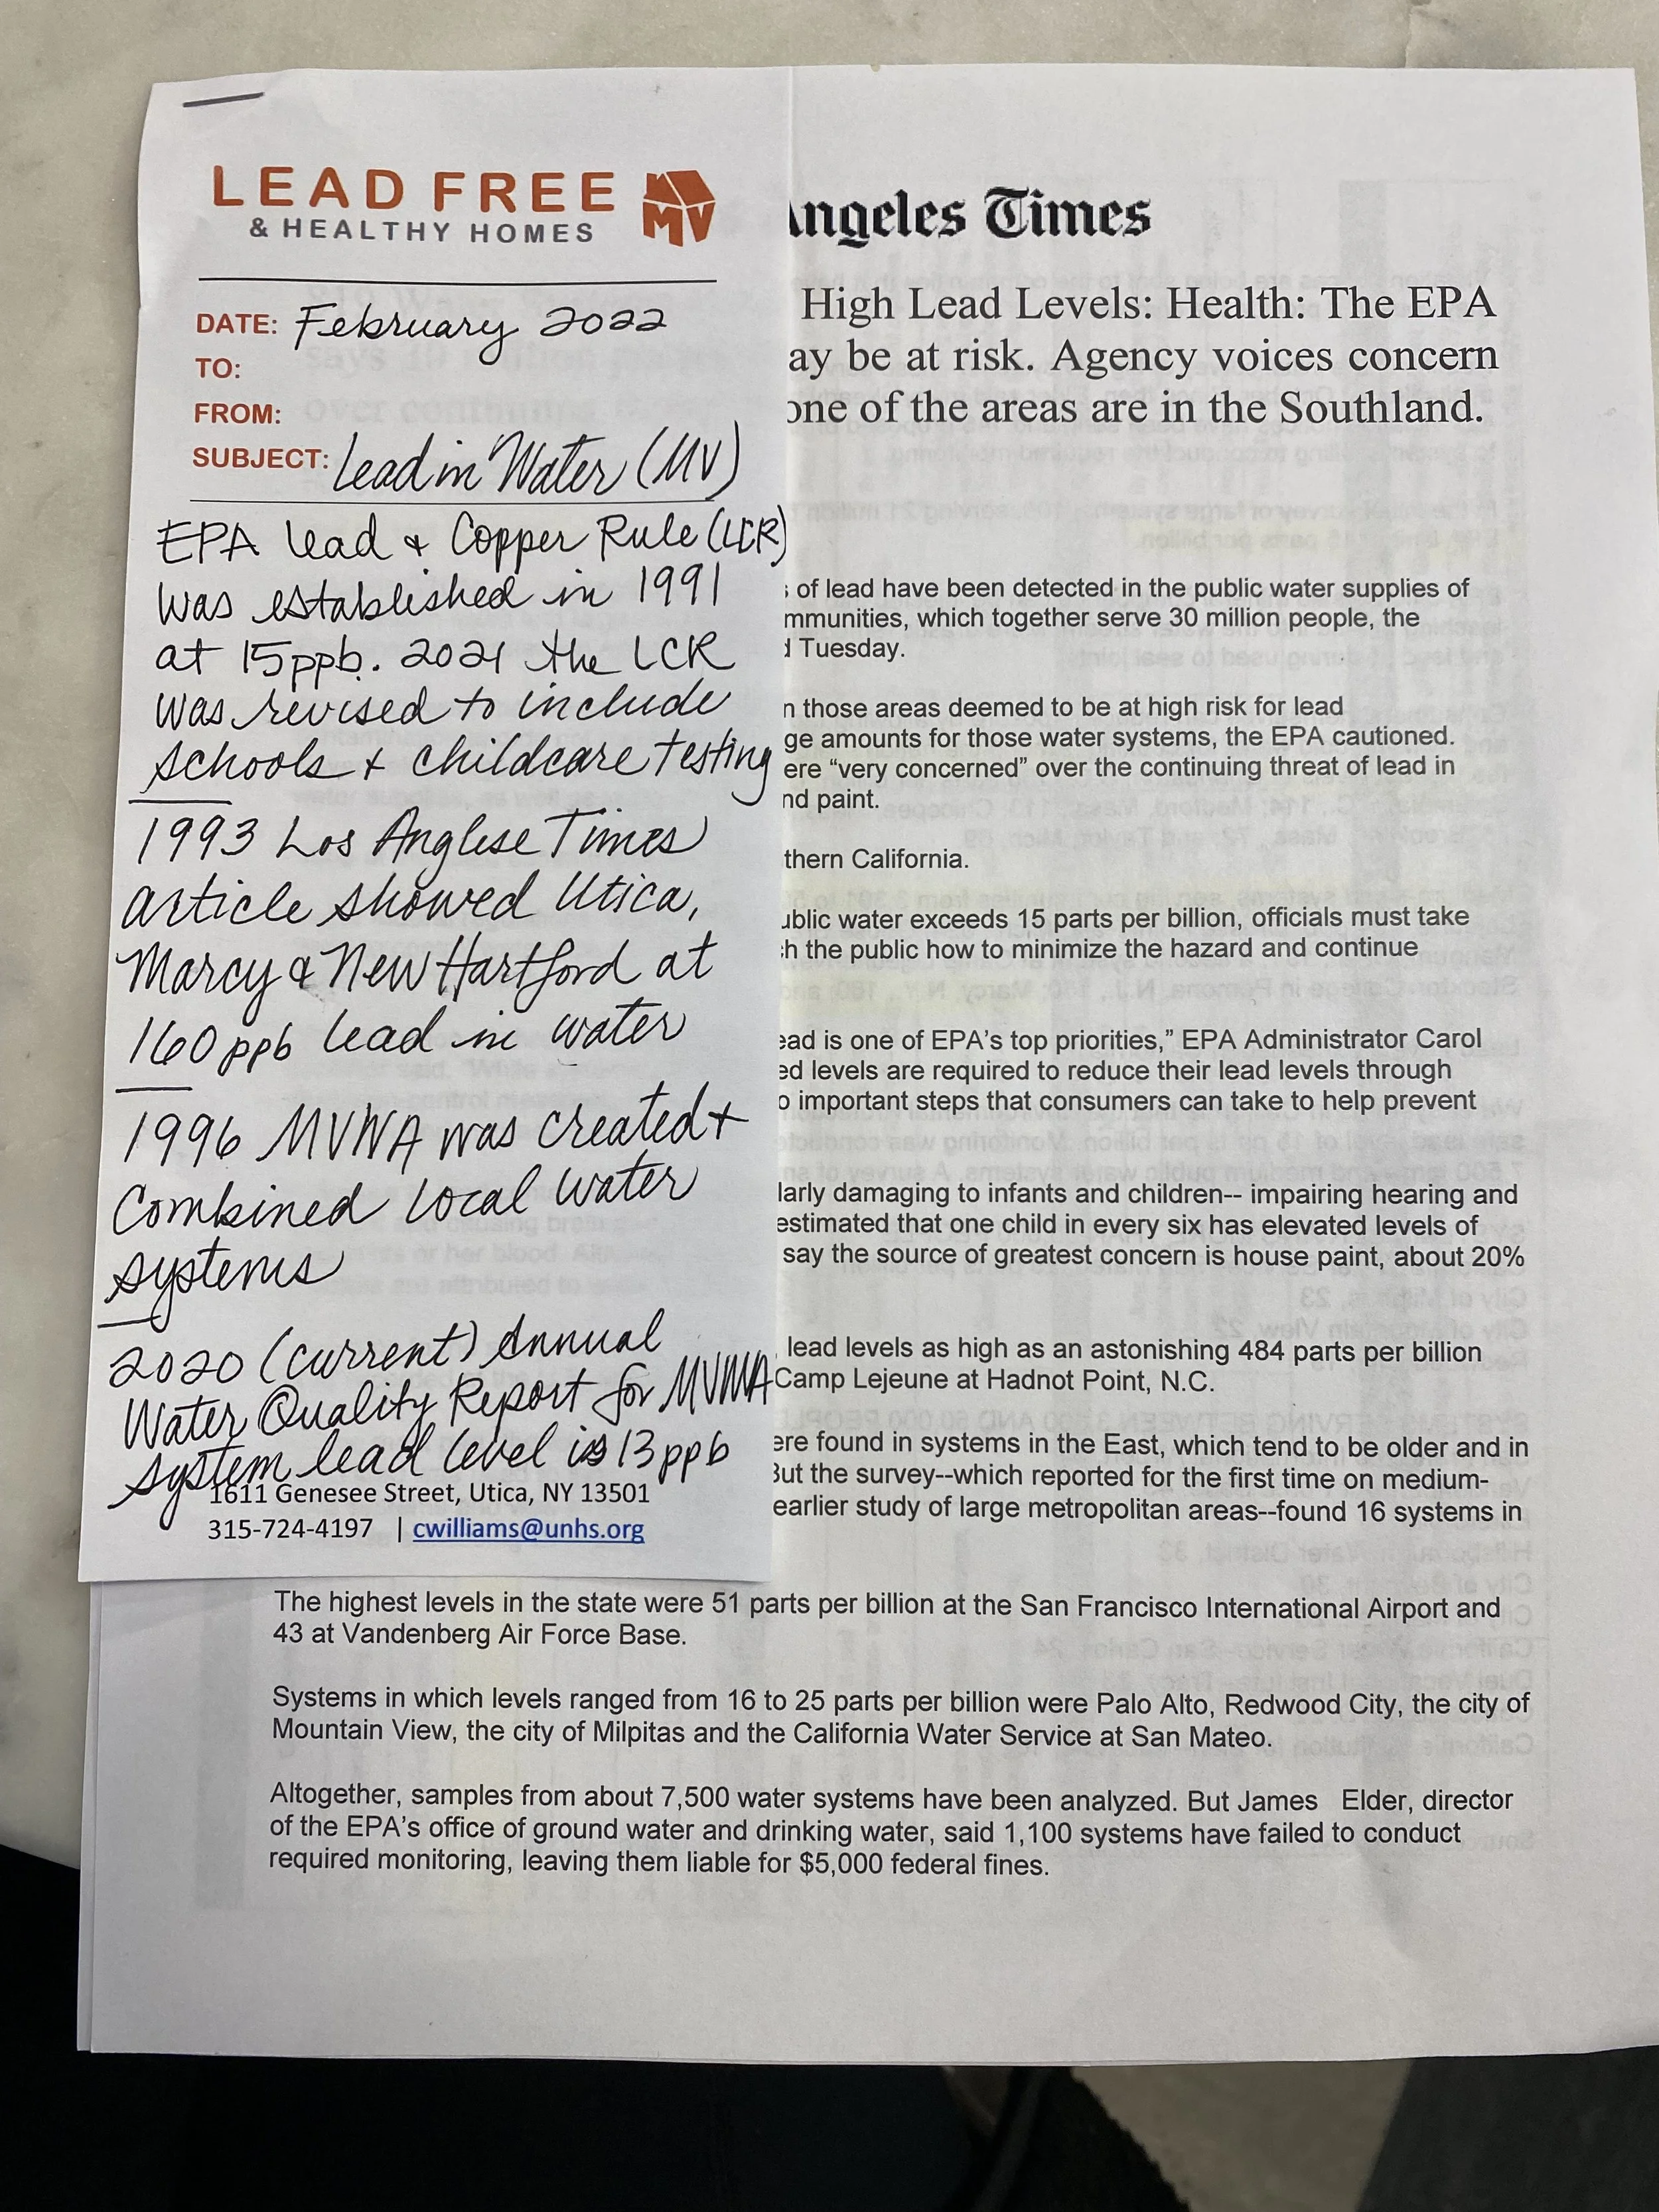 LEAD FREE
& HEALTHY HOMES
MV
DATE: February 2022
TO:
FROM:
SUBJECT: Lead in Water (MV)
EPA Lead & Copper Rule (LCR)
was established in 1991
at 15ppb. 2021 the LCR
was revised to include
schools + childcare testing
1993 Los Anglese Times
article showed Utica,
Marcy & New Hartford at
160 ppb lead in water
1996 MVWA was created +
Combined local water
systems
2020 (current) Annual
Water Quality Report for MVWA
system lead level is 13 ppb
1611 Genesee Street, Utica, NY 13501
315-724-4197 | cwilliams@unhs.org
Angeles Times
High Lead Levels: Health: The EPA
ay be at risk. Agency voices concern
one of the areas are in the Southland.
of lead have been detected in the public water supplies of
mmunities, which together serve 30 million people, the
d Tuesday.
n those areas deemed to be at high risk for lead
ge amounts for those water systems, the EPA cautioned.
ere “very concerned” over the continuing threat of lead in
nd paint.
thern California.
ublic water exceeds 15 parts per billion, officials must take
h the public how to minimize the hazard and continue
ead is one of EPA’s top priorities,” EPA Administrator Carol
ed levels are required to reduce their lead levels through
o important steps that consumers can take to help prevent
larly damaging to infants and children-- impairing hearing and
estimated that one child in every six has elevated levels of
say the source of greatest concern is house paint, about 20%
lead levels as high as an astonishing 484 parts per billion
Camp Lejeune at Hadnot Point, N.C.
ere found in systems in the East, which tend to be older and in
But the survey--which reported for the first time on medium-
earlier study of large metropolitan areas--found 16 systems in
The highest levels in the state were 51 parts per billion at the San Francisco International Airport and
43 at Vandenberg Air Force Base.
Systems in which levels ranged from 16 to 25 parts per billion were Palo Alto, Redwood City, the city of
Mountain View, the city of Milpitas and the California Water Service at San Mateo.
Altogether, samples from about 7,500 water systems have been analyzed. But James Elder, director
of the EPA’s office of ground water and drinking water, said 1,100 systems have failed to conduct
required monitoring, leaving them liable for $5,000 federal fines.